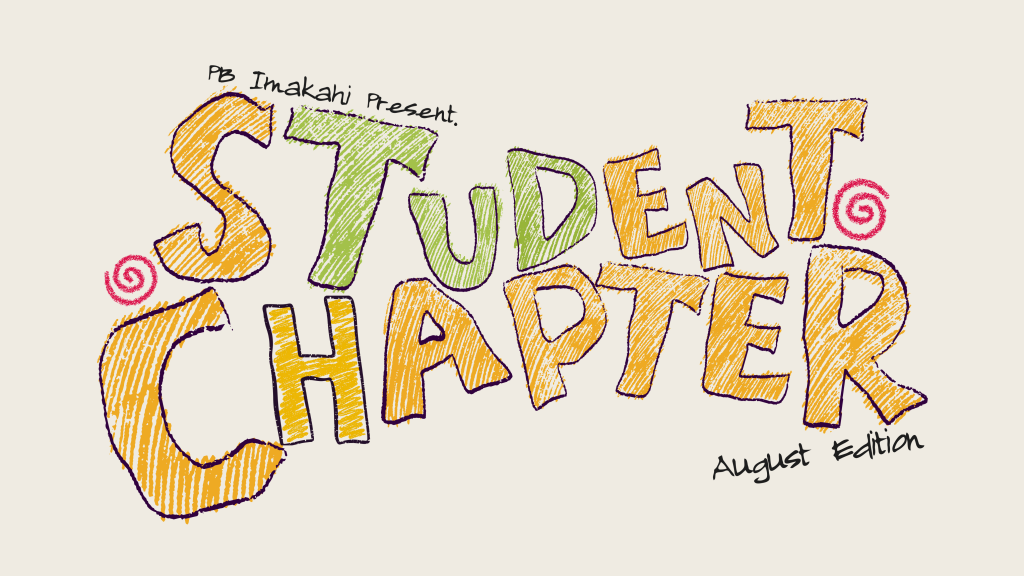 PB Imakahi Present.
STUDENT
CHAPTER
August Edition